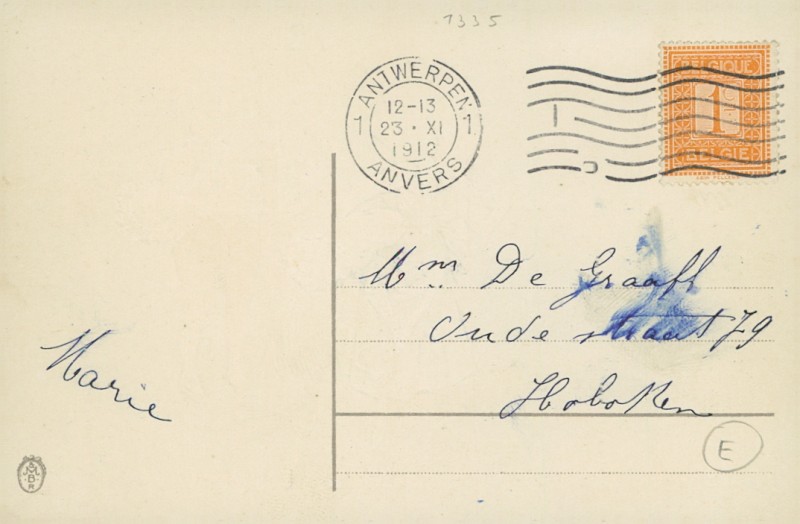 1335
ANTWERPEN
12-13
1 23 · XI 1
1912
ANVERS
BELGIQUE
1
BELGIE
Mm De Graaff
Oude straat 79
Hoboken
Marie
E